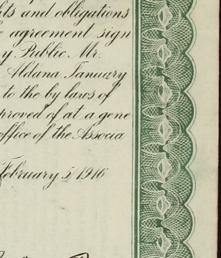 ts and obligations
agreement sign
y Public. Mr.
Aldana January
to the by laws of
proved of at a gene
office of the Associa
February 5, 1916